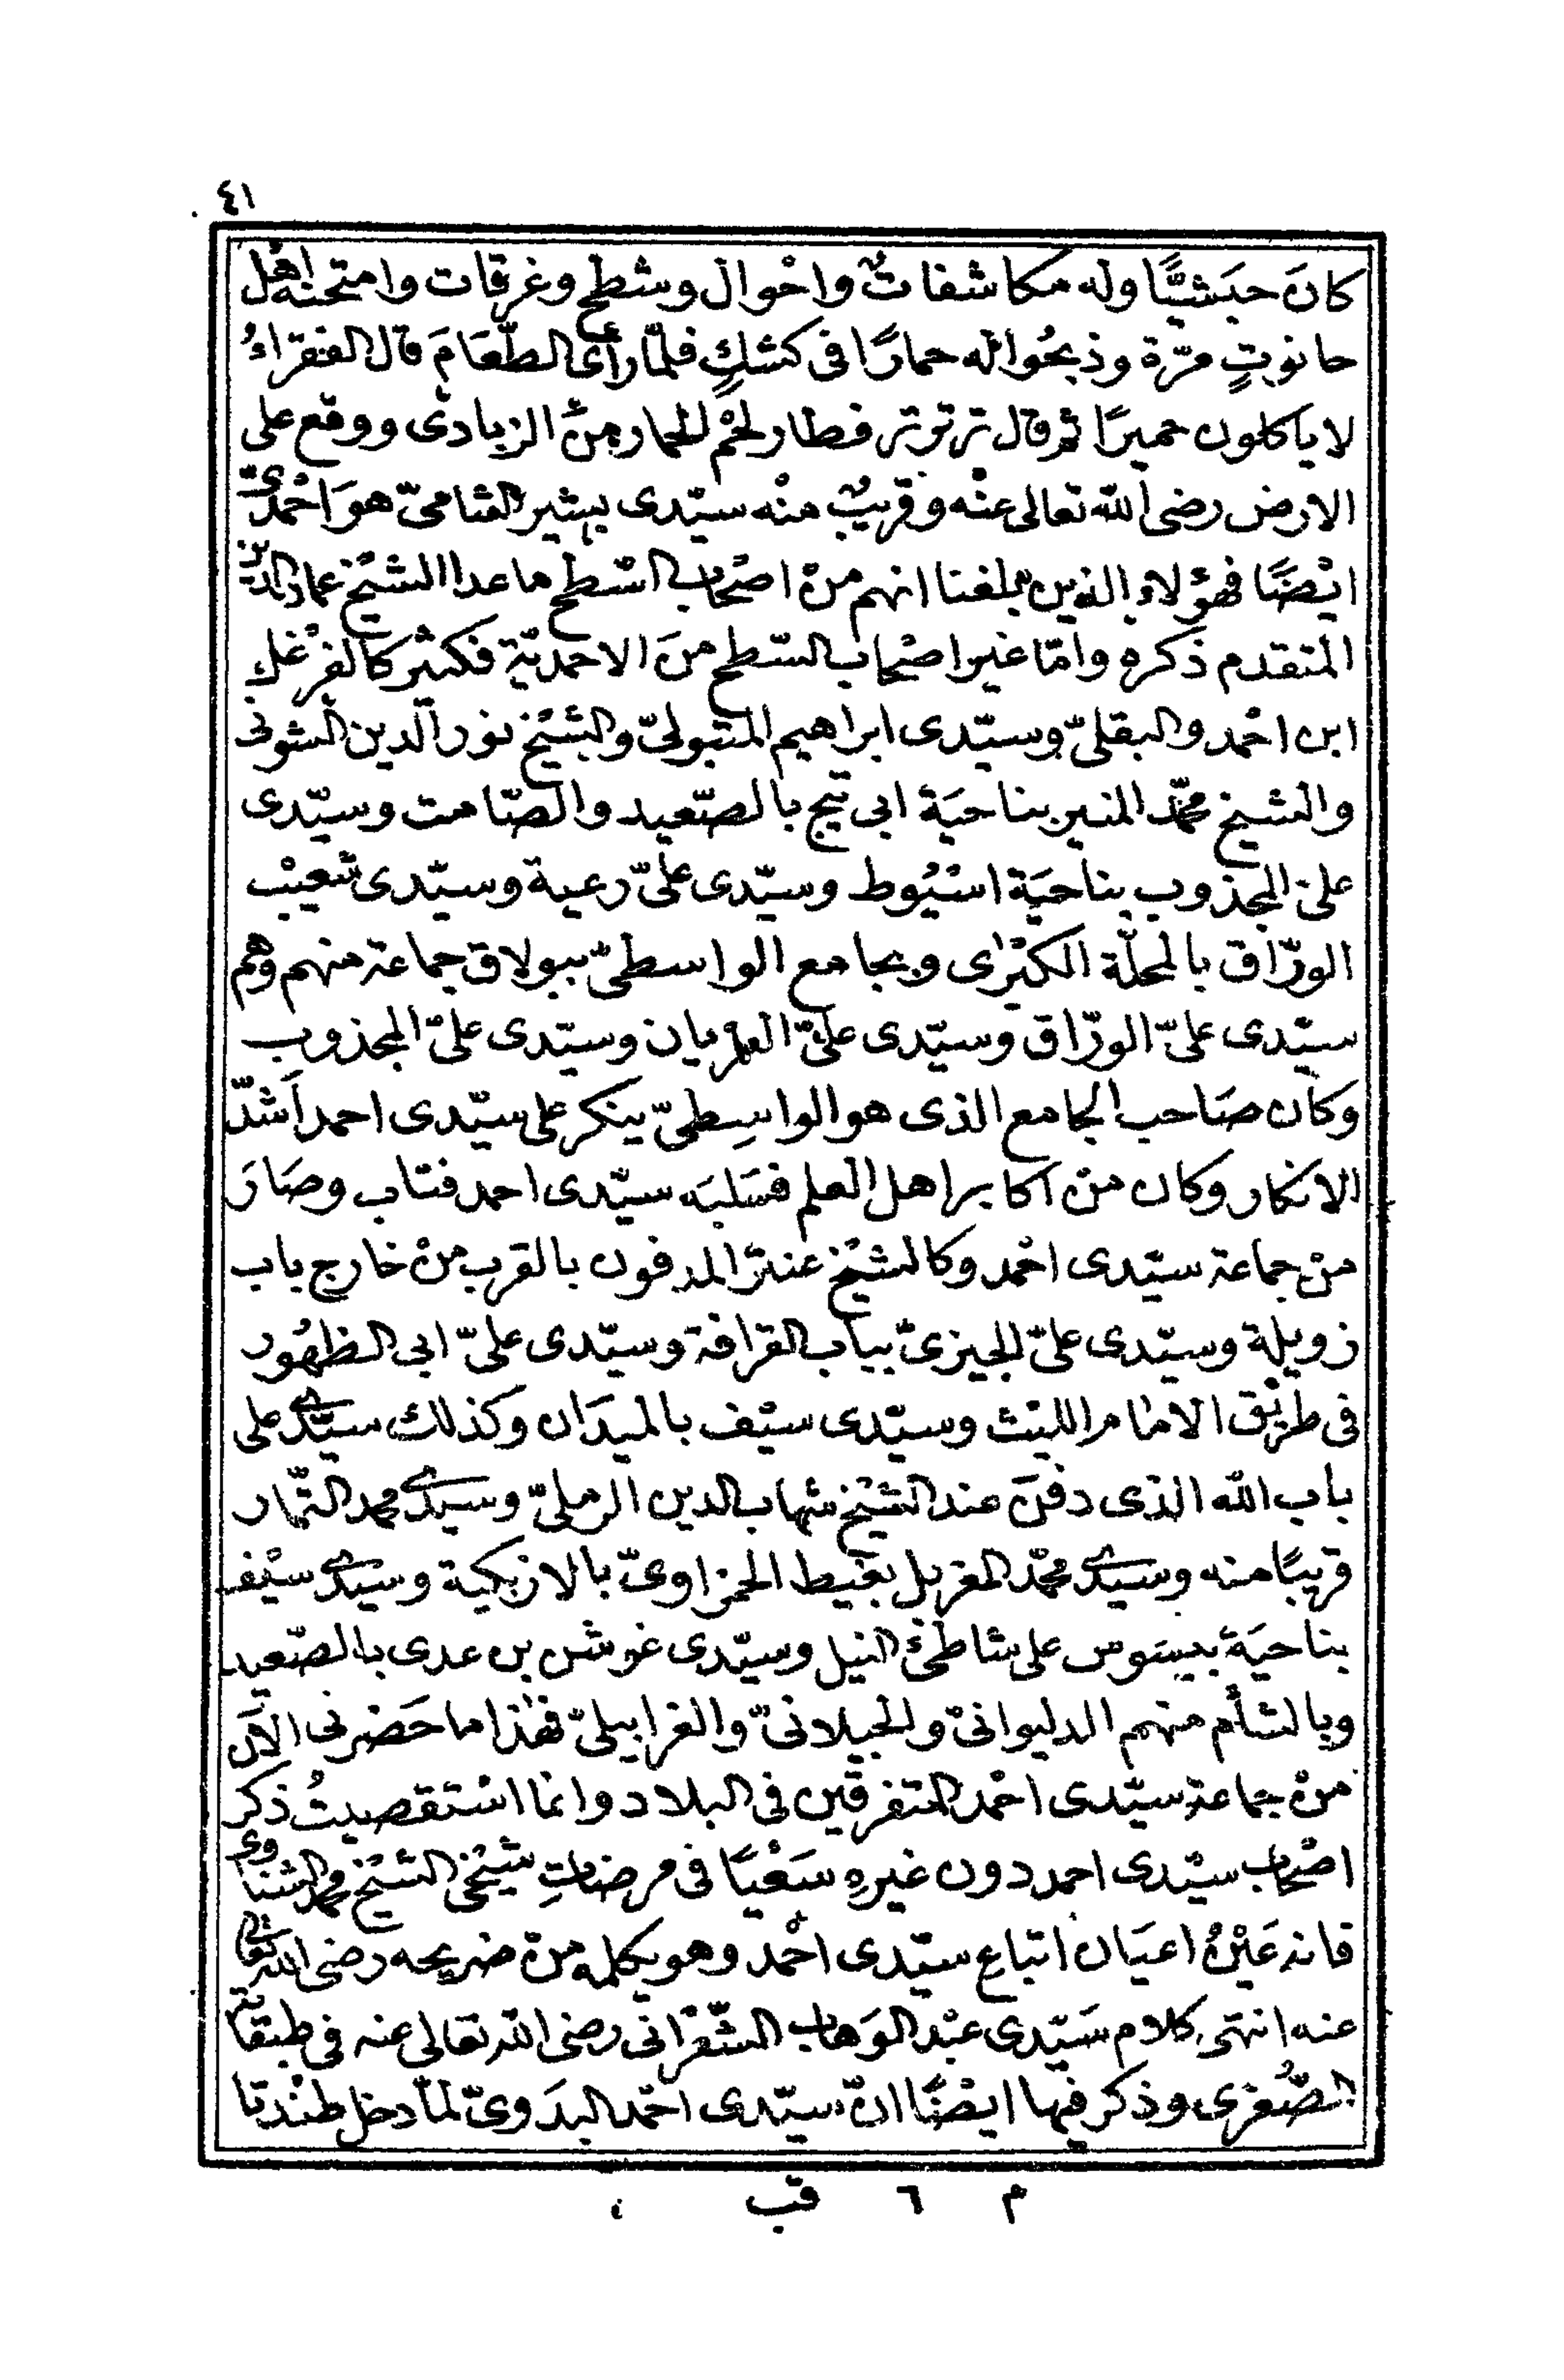 ٤١
كانَ حبَشيًّا وله مكاشفاتٌ واحْوال وشطح وغرقات وامتحنه اهْل
حانوتٍ مرّة وذبحُوا له حمارًا فى كشكٍ فلمّا رأى الطّعَامَ قال الفقراءُ
لا ياكلون حميرًا ثم قال ترتوتر فطار لحْم الحمار منْ الزبادى ووقع على
الارض رضى الله تعالى عنْه وقريبٌ منْه سيّدى بشير الشامىّ هوَ احْمدىّ
ايْضًا فهؤلاء الذين بلغنا انهم منْ اصْحاب السّطح ما عدا الشيْخ عماد الدين
المتقدم ذكره وامّا غير اصْحاب السّطح منَ الاحمديّة فكثير كالفرْغل
ابن احْمد والبقلىّ وسيّدى ابراهيم المتبولىّ والشيْخ نور الدين الشونى
والشيخ محمّد المنير بناحيَة ابى تيج بالصّعيد والصّامت وسيّدى
علىّ المجذوب بناحيَة اسْيُوط وسيّدى علىّ رعية وسيّدى شعيْب
الورّاق بالمحلّة الكبْرى وبجامع الواسطىّ ببولاق جماعة منهم وهم
سيّدى علىّ الورّاق وسيّدى علىّ العريان وسيّدى علىّ المجذوب
وكان صَاحب الجامع الذى هو الواسِطىّ ينكر على سيّدى احمد اَشدّ
الانكار وكان منْ اكابر اهل العلم فسَلبَه سيّدى احمد فتاب وصَارَ
منْ جماعة سيّدى احْمد وكالشيْخ عنتر المدفون بالقرب منْ خارج باب
زويلة وسيّدى علىّ الجيزىّ بباب القرافة وسيّدى علىّ ابى الظهُور
فى طريْق الامام الليْث وسيّدى سيْف بالميدَان وكذلك سيّدى على
باب الله الذى دفنَ عند الشيْخ شهاب الدين الرملىّ وسيدى محمد التمّار
قريبًا منه وسيدى محمّد المغربل بغيط الحمزاوىّ بالازبكية وسيّدى سيْف
بناحيَة بيسَوس على شاطئ النيل وسيّدى غوش بن عدى بالصّعيد
وبالشأم منهم الدليوانىّ والجيلانىّ والغرابيلىّ فهٰذا ما حَضرنى الآن
منْ جماعة سيّدى احْمد المتفرقين فى البلاد وانما اسْتقصيتُ ذكر
اصْحاب سيّدى احمد دون غيرهِ سَعْيًا فى مرضاتِ شيْخى الشيْخ محمد الشناوى
فانه عَيْنُ اعيَان اتباع سيّدى احْمد وهو يكلمه منْ ضريحه رضى الله تعالى
عنه انتهى كلام سَيّدى عبْد الوَهاب الشّعْرانى رضى الله تعالى عنه فى طبقاته
الصُّغرى وذكر فيها ايضًا انّ سيّدى احْمد البدَوىّ لمّا دخل طنْدتا
م ٦ قب